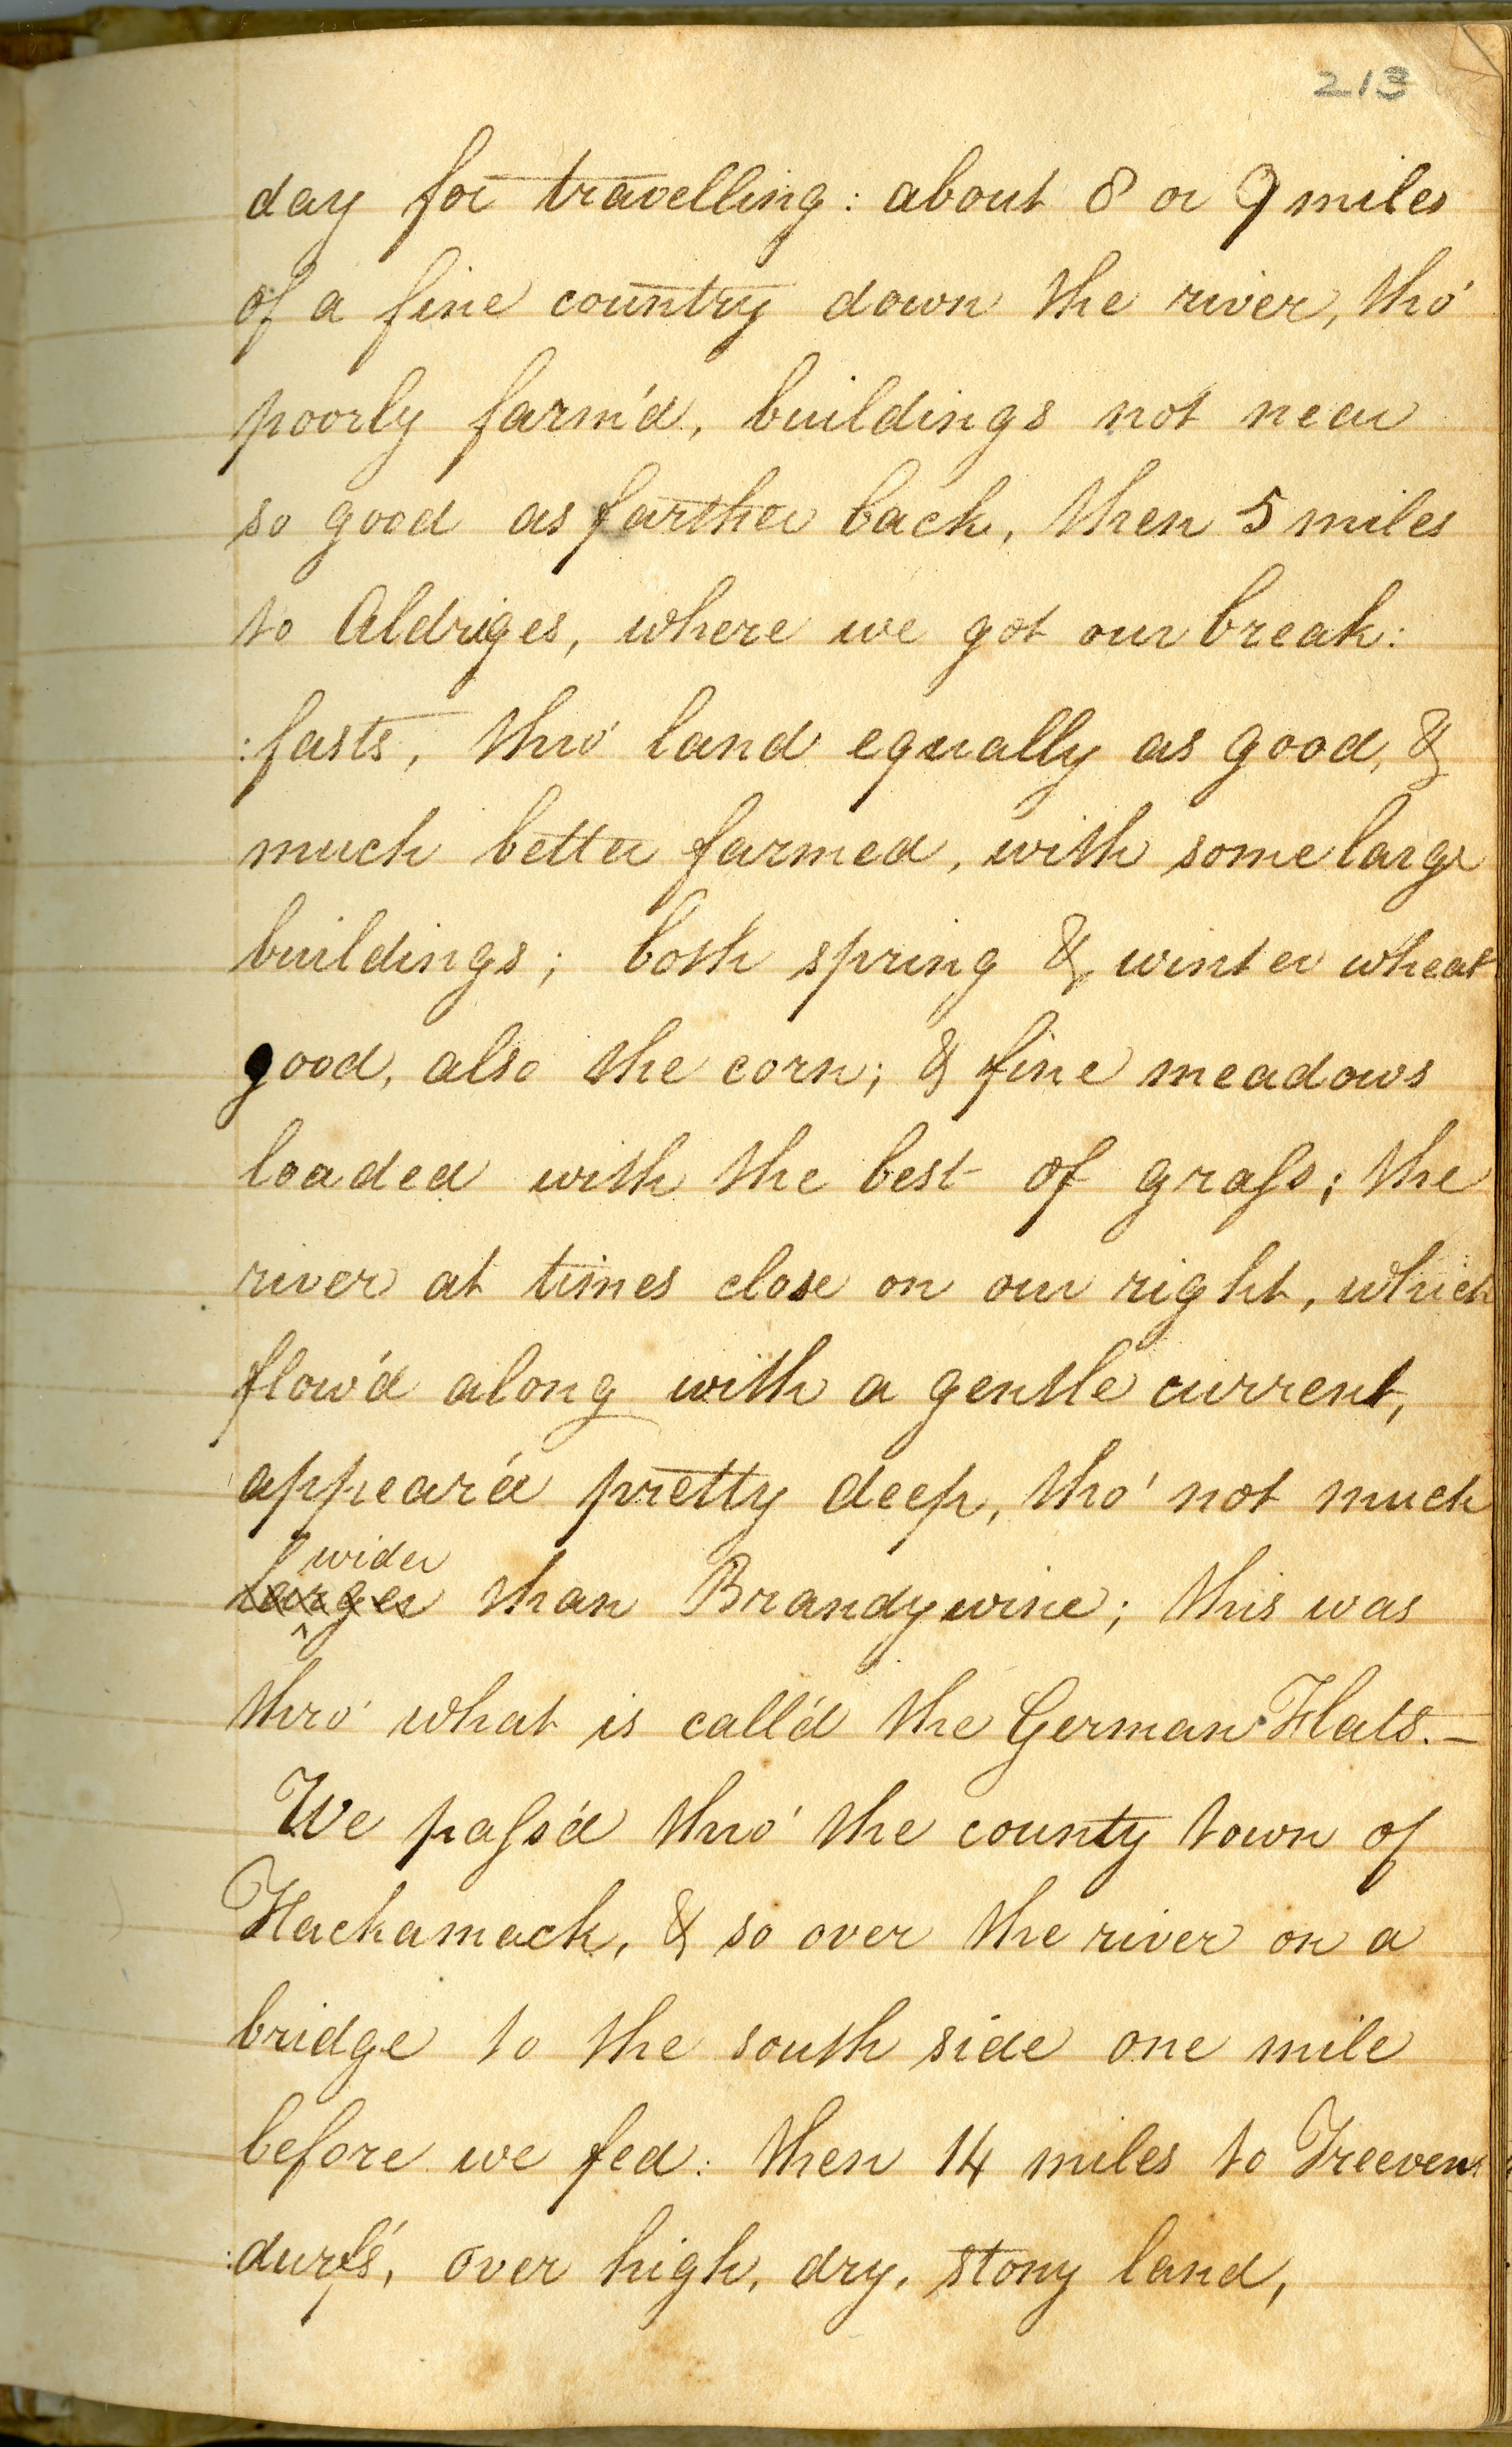 213
day for travelling: about 8 or 9 miles
of a fine country down the river, tho'
poorly farm'd, buildings not near
so good as farther back, then 5 miles
to Aldriges, where we got our break:
:fasts, thro' land equally as good, &
much better farmed, with some large
buildings; both spring & winter wheat
good, also the corn; & fine meadows
loaded with the best of graſs; the
river at times close on our right, which
flow'd along with a gentle current,
appear'd pretty deep, tho' not much
wider
larger than Brandywine; this was
thro' what is call'd the German Flats.—
We paſs'd thro' the county town of
Hackamack, & so over the river on a
bridge to the south side one mile
before we fed: then 14 miles to Treeven
:durfs', over high, dry, stony land,